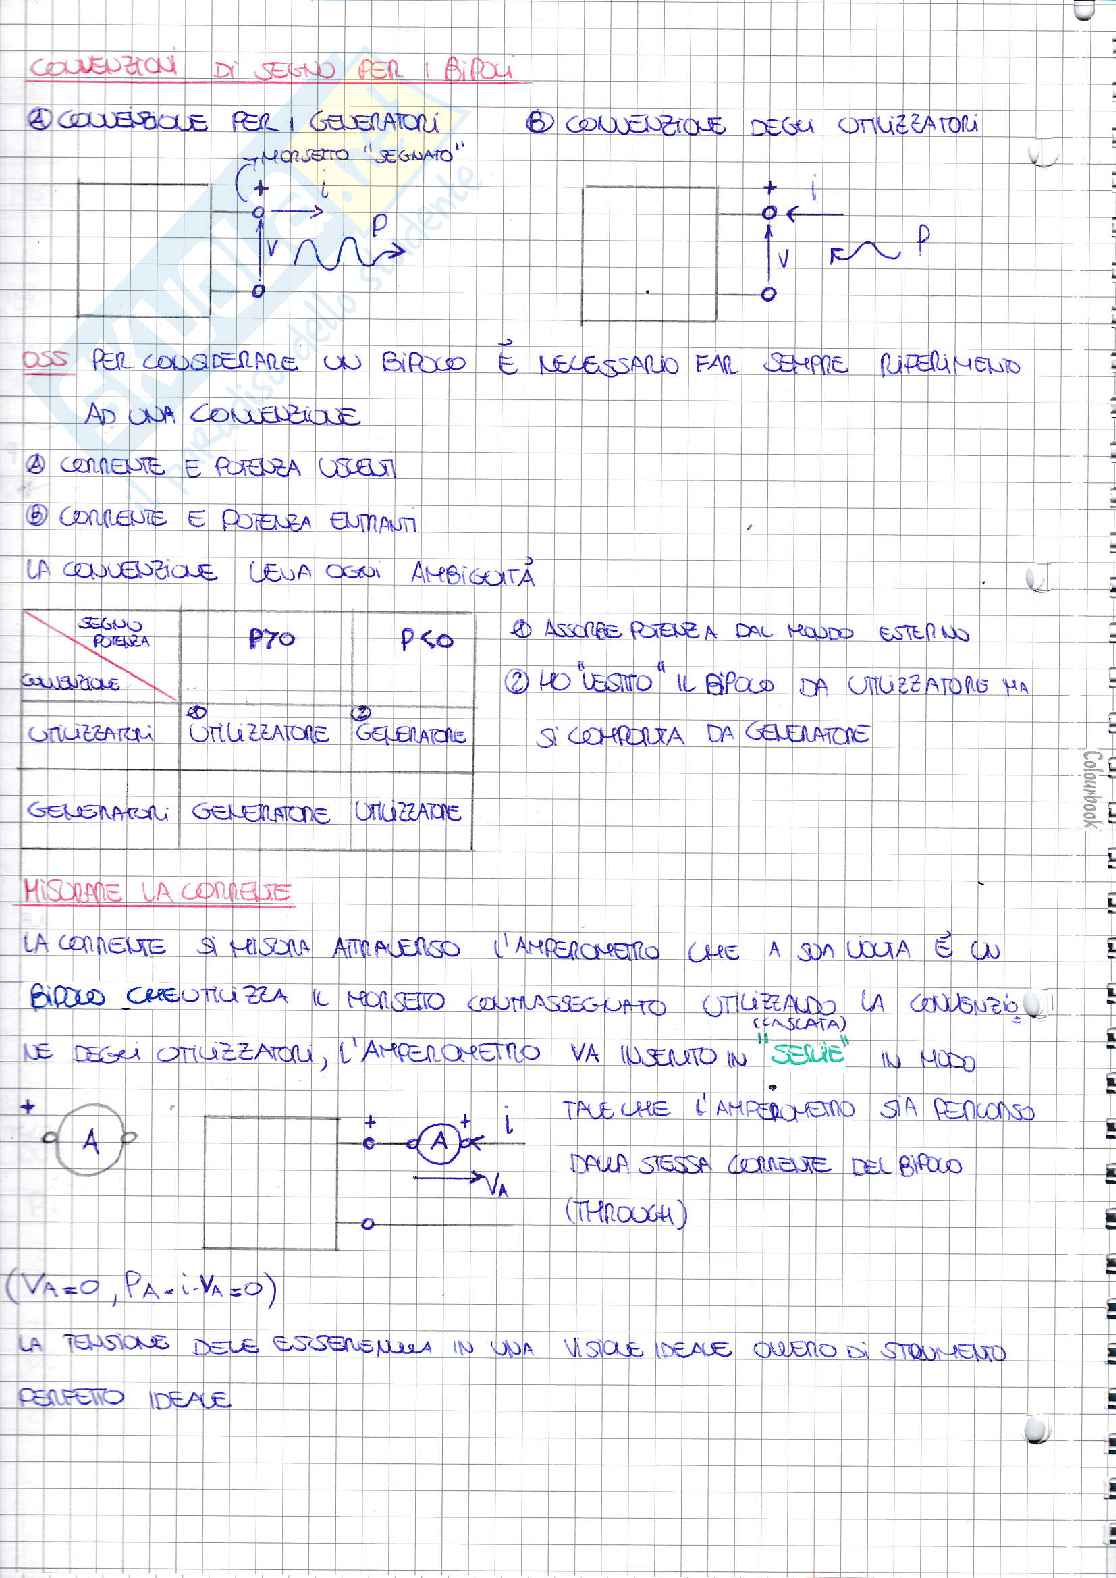 CONVENZIONI DI SEGNO PER I BIPOLI
A CONVENZIONE PER I GENERATORI
B CONVENZIONE DEGLI UTILIZZATORI
MORSETTO "SEGNATO"
+ i
V P
+ i
V P
OSS PER CONSIDERARE UN BIPOLO È NECESSARIO FAR SEMPRE RIFERIMENTO
AD UNA CONVENZIONE
A CORRENTE E POTENZA USCENTI
B CORRENTE E POTENZA ENTRANTI
LA CONVENZIONE LEVA OGNI AMBIGUITÀ
SEGNO POTENZA
CONVENZIONE
P>0 P<0
UTILIZZATORI 1 UTILIZZATORE 2 GENERATORE
GENERATORI GENERATORE UTILIZZATORE
1 ASSORBE POTENZA DAL MONDO ESTERNO
2 HO "VESTITO" IL BIPOLO DA UTILIZZATORE MA
SI COMPORTA DA GENERATORE
Colourbook
MISURARE LA CORRENTE
LA CORRENTE SI MISURA ATTRAVERSO L'AMPEROMETRO CHE A SUA VOLTA È UN
BIPOLO CHE UTILIZZA IL MORSETTO CONTRASSEGNATO UTILIZZANDO LA CONVENZIO
(CASCATA)
NE DEGLI UTILIZZATORI, L'AMPEROMETRO VA INSERITO IN "SERIE" IN MODO
TALE CHE L'AMPEROMETRO SIA PERCORSO
DALLA STESSA CORRENTE DEL BIPOLO
(THROUGH)
+ A
+ A + i
VA
(VA=0, PA=i·VA=0)
LA TENSIONE DEVE ESSERE NULLA IN UNA VISIONE IDEALE OVVERO DI STRUMENTO
PERFETTO IDEALE